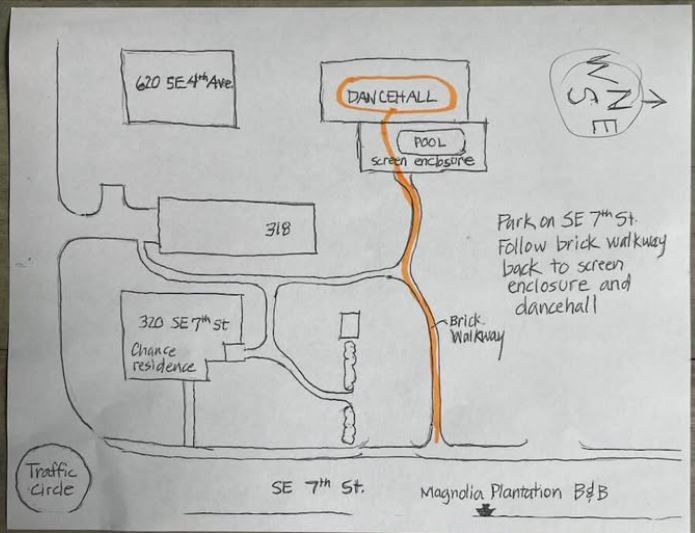 620 SE 4th Ave
DANCEHALL
POOL
screen enclosure
N
W
E
S
318
Park on SE 7th St.
Follow brick walkway
back to screen
enclosure and
dancehall
320 SE 7th St
Chance
residence
Brick
Walkway
Traffic
Circle
SE 7th St.
Magnolia Plantation B&B